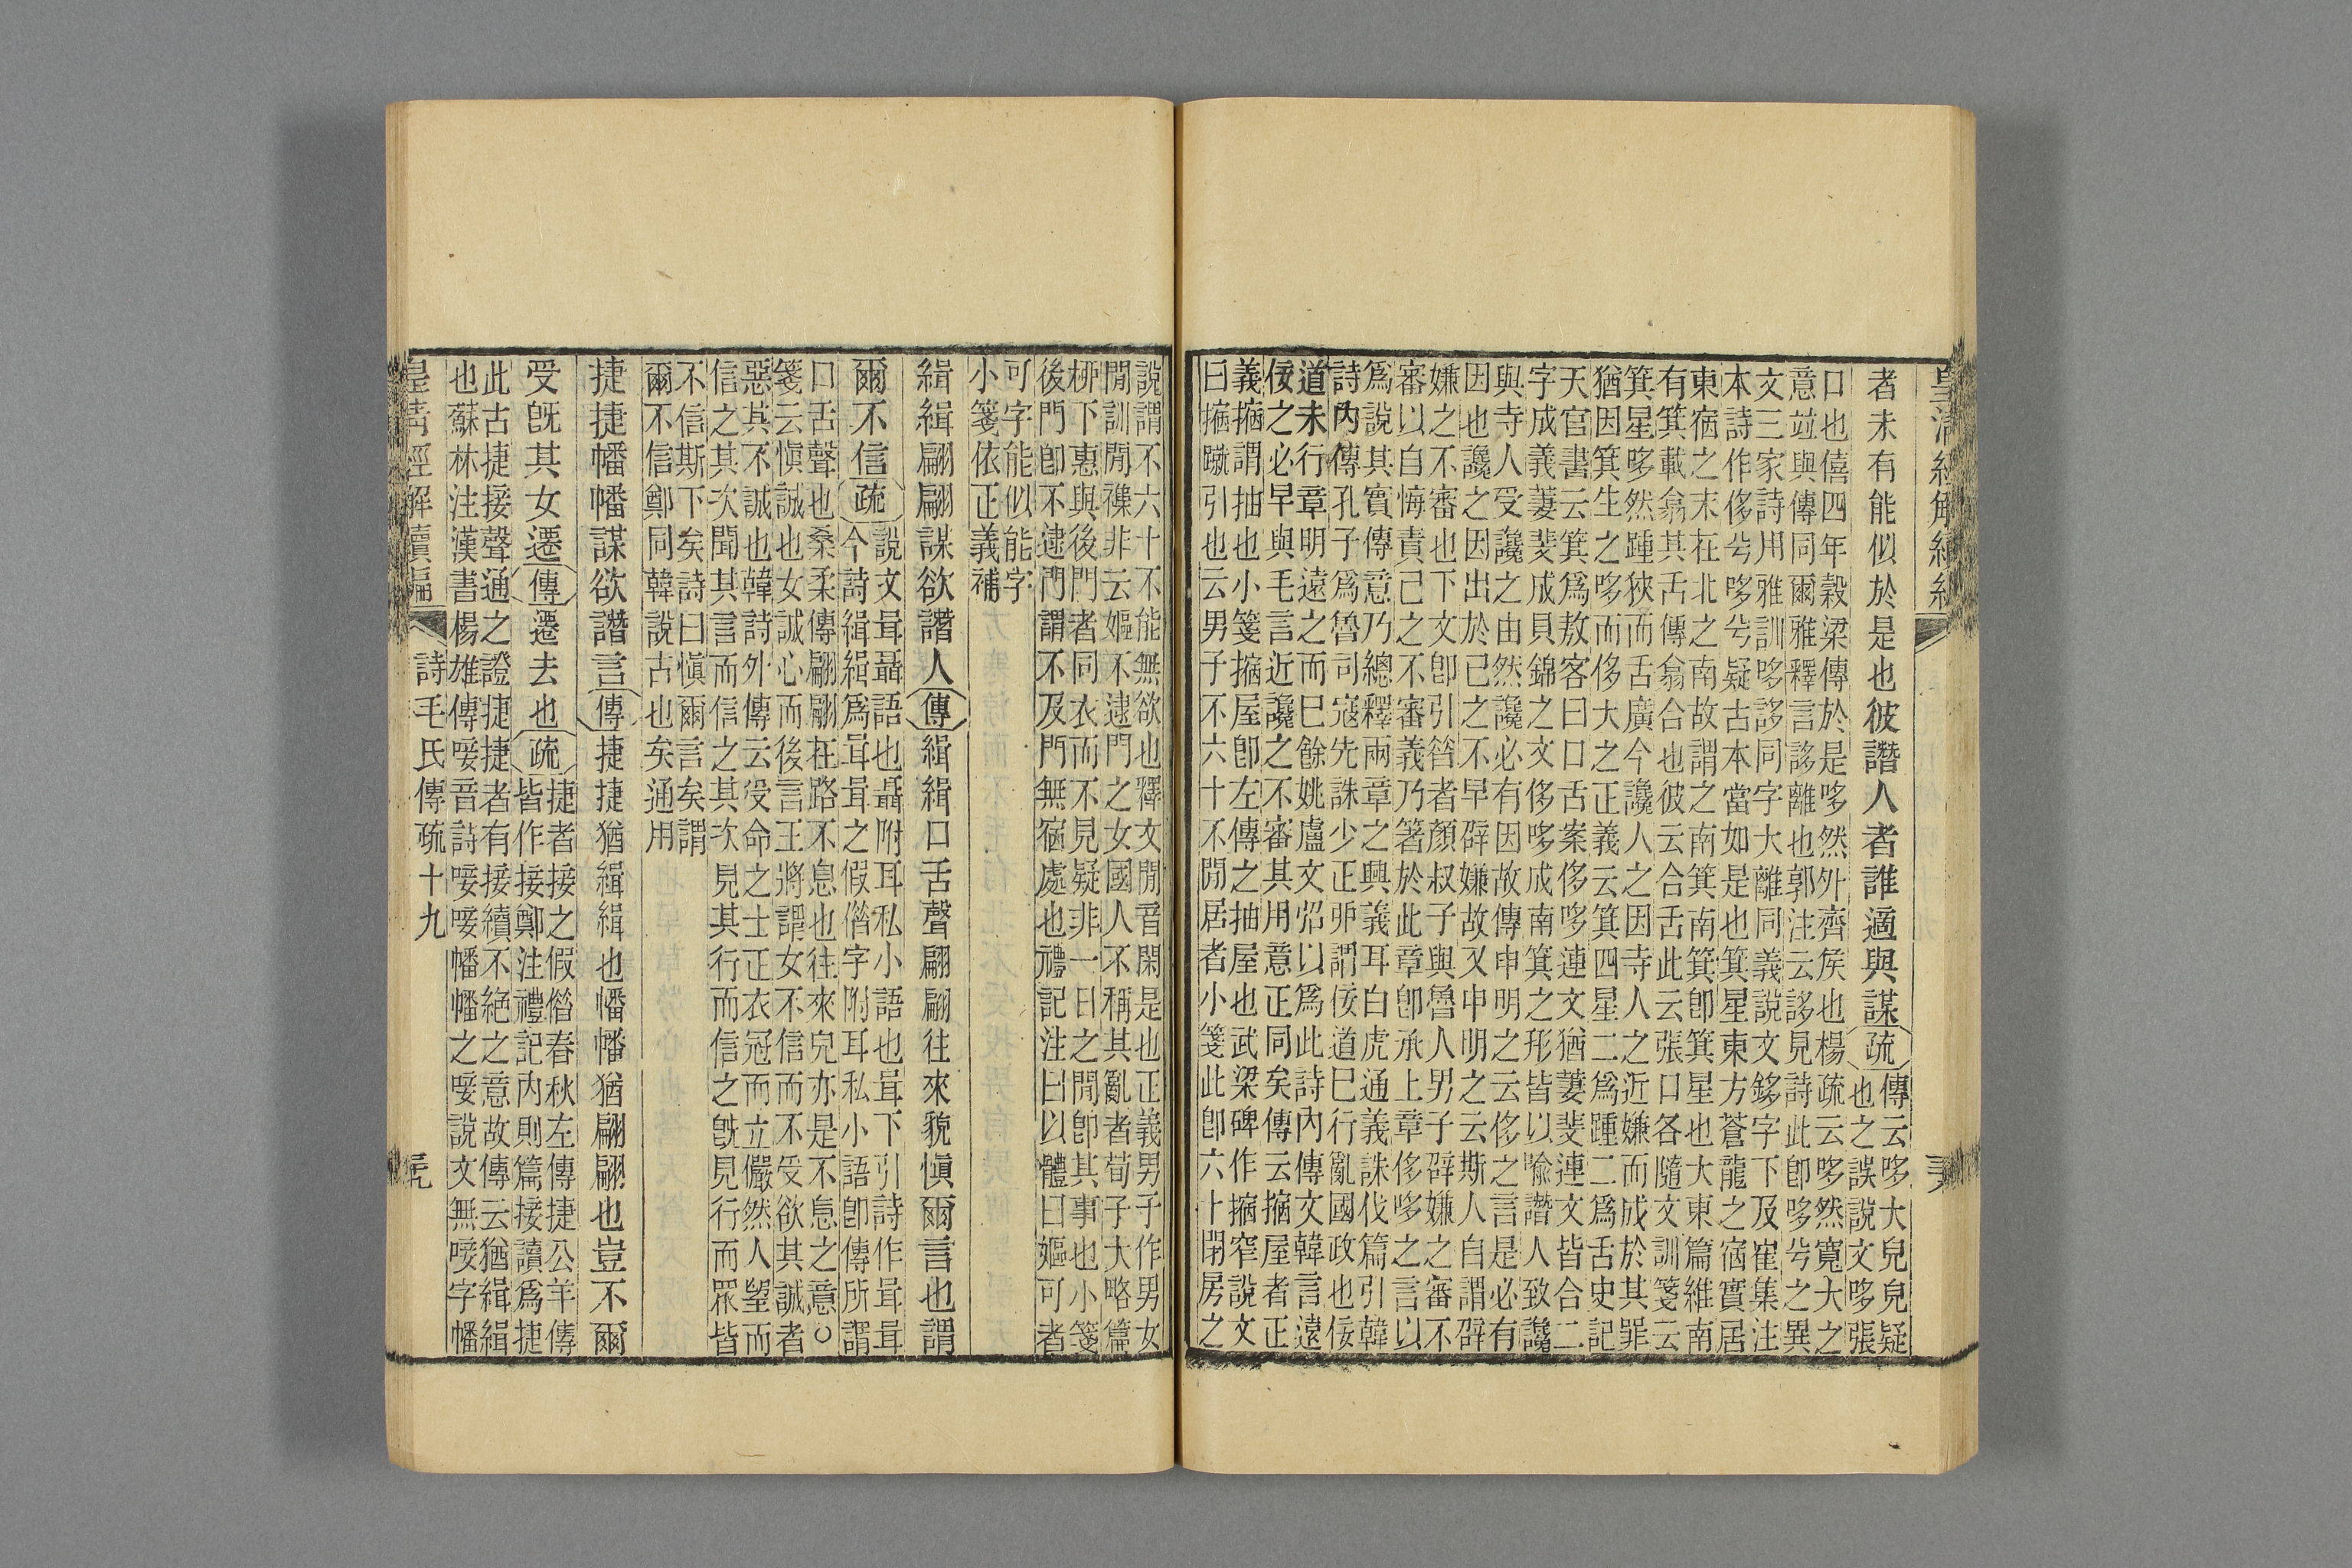 皇清經解續編
者未有能似於是也彼譖人者誰適與謀疏傳云哆大皃皃疑
也之誤說文哆張
口也僖四年穀梁傳於是哆然外齊矦也楊疏云哆然寬大之
意竝與傳同爾雅釋言誃離也郭注云誃見詩此卽哆兮之異
文三家詩用雅訓哆誃同字大離同義說文鉹字下及崔集注
本詩作侈兮哆兮疑古本當如是也箕星東方蒼龍之宿實居
東宿之末在北之南故謂之南箕南箕卽箕星也大東篇維南
有箕載翕其舌傳翕合也彼云合舌此云張口各隨文訓箋云
箕星哆然踵狹而舌廣今讒人之因寺人之近嫌而成於其罪
猶因箕生之哆而侈大之正義云箕四星二爲踵二爲舌史記
天官書云箕爲敖客曰口舌案侈哆連文猶萋斐連文皆合二
字成義萋斐成貝錦之文侈哆成南箕之形皆以喻譖人致讒
與寺人受讒之由然讒必有因故傳申明之云侈之言是必有
因也讒之因出於已之不早辟嫌故又申明之云斯人自謂辟
嫌之不審也下文卽引笞者顏叔子與魯人男子辟嫌之審不
審以自悔責己之不審義乃著於此章卽承上章侈哆之言以
爲說其實傳意乃總釋兩章之興義耳白虎通義誅伐篇引韓
詩內傳孔子爲魯司寇先誅少正卯謂佞道巳行亂國政也佞
道未行章明遠之而巳餘姚盧文弨以爲此詩內傳文韓言遠
佞之必早與毛言近讒之不審其用意正同矣傳云摍屋者正
義摍謂抽也小箋摍屋卽左傳之抽屋也武梁碑作摍窄說文
曰摍蹴引也云男子不六十不閒居者小箋此卽六十閉房之
說謂不六十不能無欲也釋文閒音閑是也正義男子作男女
閒訓閒襍非云嫗不逮門之女國人不稱其亂者荀子大略篇
栁下惠與後門者同衣而不見疑非一日之閒卽其事也小箋
後門卽不逮門謂不及門無宿處也禮記注曰以體曰嫗可者
可字能似能字
小箋依正義補
緝緝翩翩謀欲譖人傳緝緝口舌聲翩翩往來貌愼爾言也謂
爾不信疏說文咠聶語也聶附耳私小語也咠下引詩作咠咠
今詩緝緝爲咠咠之假偺字附耳私小語卽傳所謂
口舌聲也桑柔傳翩翩在路不息也往來皃亦是不息之意○
箋云愼誠也女誠心而後言王將謂女不信而不受欲其誠者
惡其不誠也韓詩外傳云受命之士正衣冠而立儼然人望而
信之其次聞其言而信之其次見其行而信之旣見行而眾皆
不信斯下矣詩曰愼爾言矣謂
爾不信鄭同韓說古也矣通用
捷捷幡幡謀欲譖言傳捷捷猶緝緝也幡幡猶翩翩也豈不爾
受旣其女遷傳遷去也疏捷者接之假偺春秋左傳捷公羊傳
皆作接鄭注禮記內則篇接讀爲捷
此古捷接聲通之證捷捷者有接續不絕之意故傳云猶緝緝
也蘇林注漢書楊雄傳唼音詩唼唼幡幡之唼說文無唼字幡
皇淸經解續編
詩毛氏傳疏十九